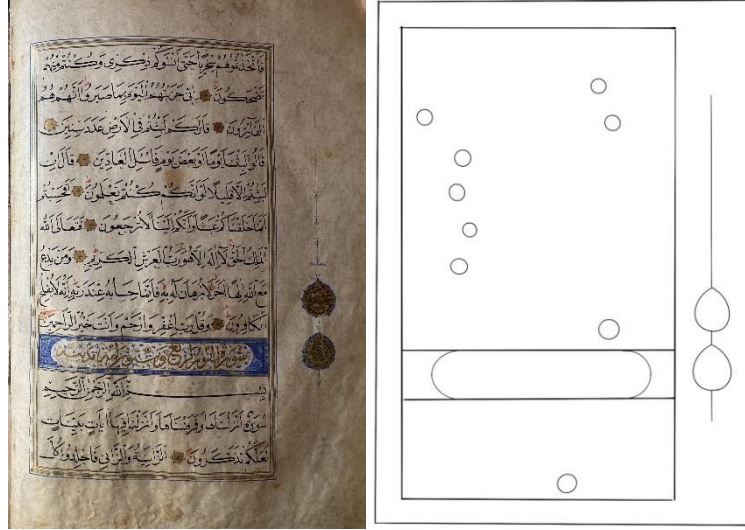 فاتخذتموهم سخريا حتى أنسوكم ذكري وكنتم منهم
تضحكون إني جزيتهم اليوم بما صبروا أنهم هم
الفائزون قال كم لبثتم في الأرض عدد سنين
قالوا لبثنا يوما أو بعض يوم فاسئل العادين قال إن
لبثتم إلا قليلا لو أنكم كنتم تعلمون أفحسبتم
أنما خلقناكم عبثا وأنكم إلينا لا ترجعون فتعالى الله
الملك الحق لا إله إلا هو رب العرش الكريم ومن يدع
مع الله إلها آخر لا برهان له به فإنما حسابه عند ربه إنه لا يفلح
الكافرون وقل رب اغفر وارحم وأنت خير الراحمين
سورة النور
بسم الله الرحمن الرحيم
سورة أنزلناها وفرضناها وأنزلنا فيها آيات بينات
لعلكم تذكرون الزانية والزاني فاجلدوا كل